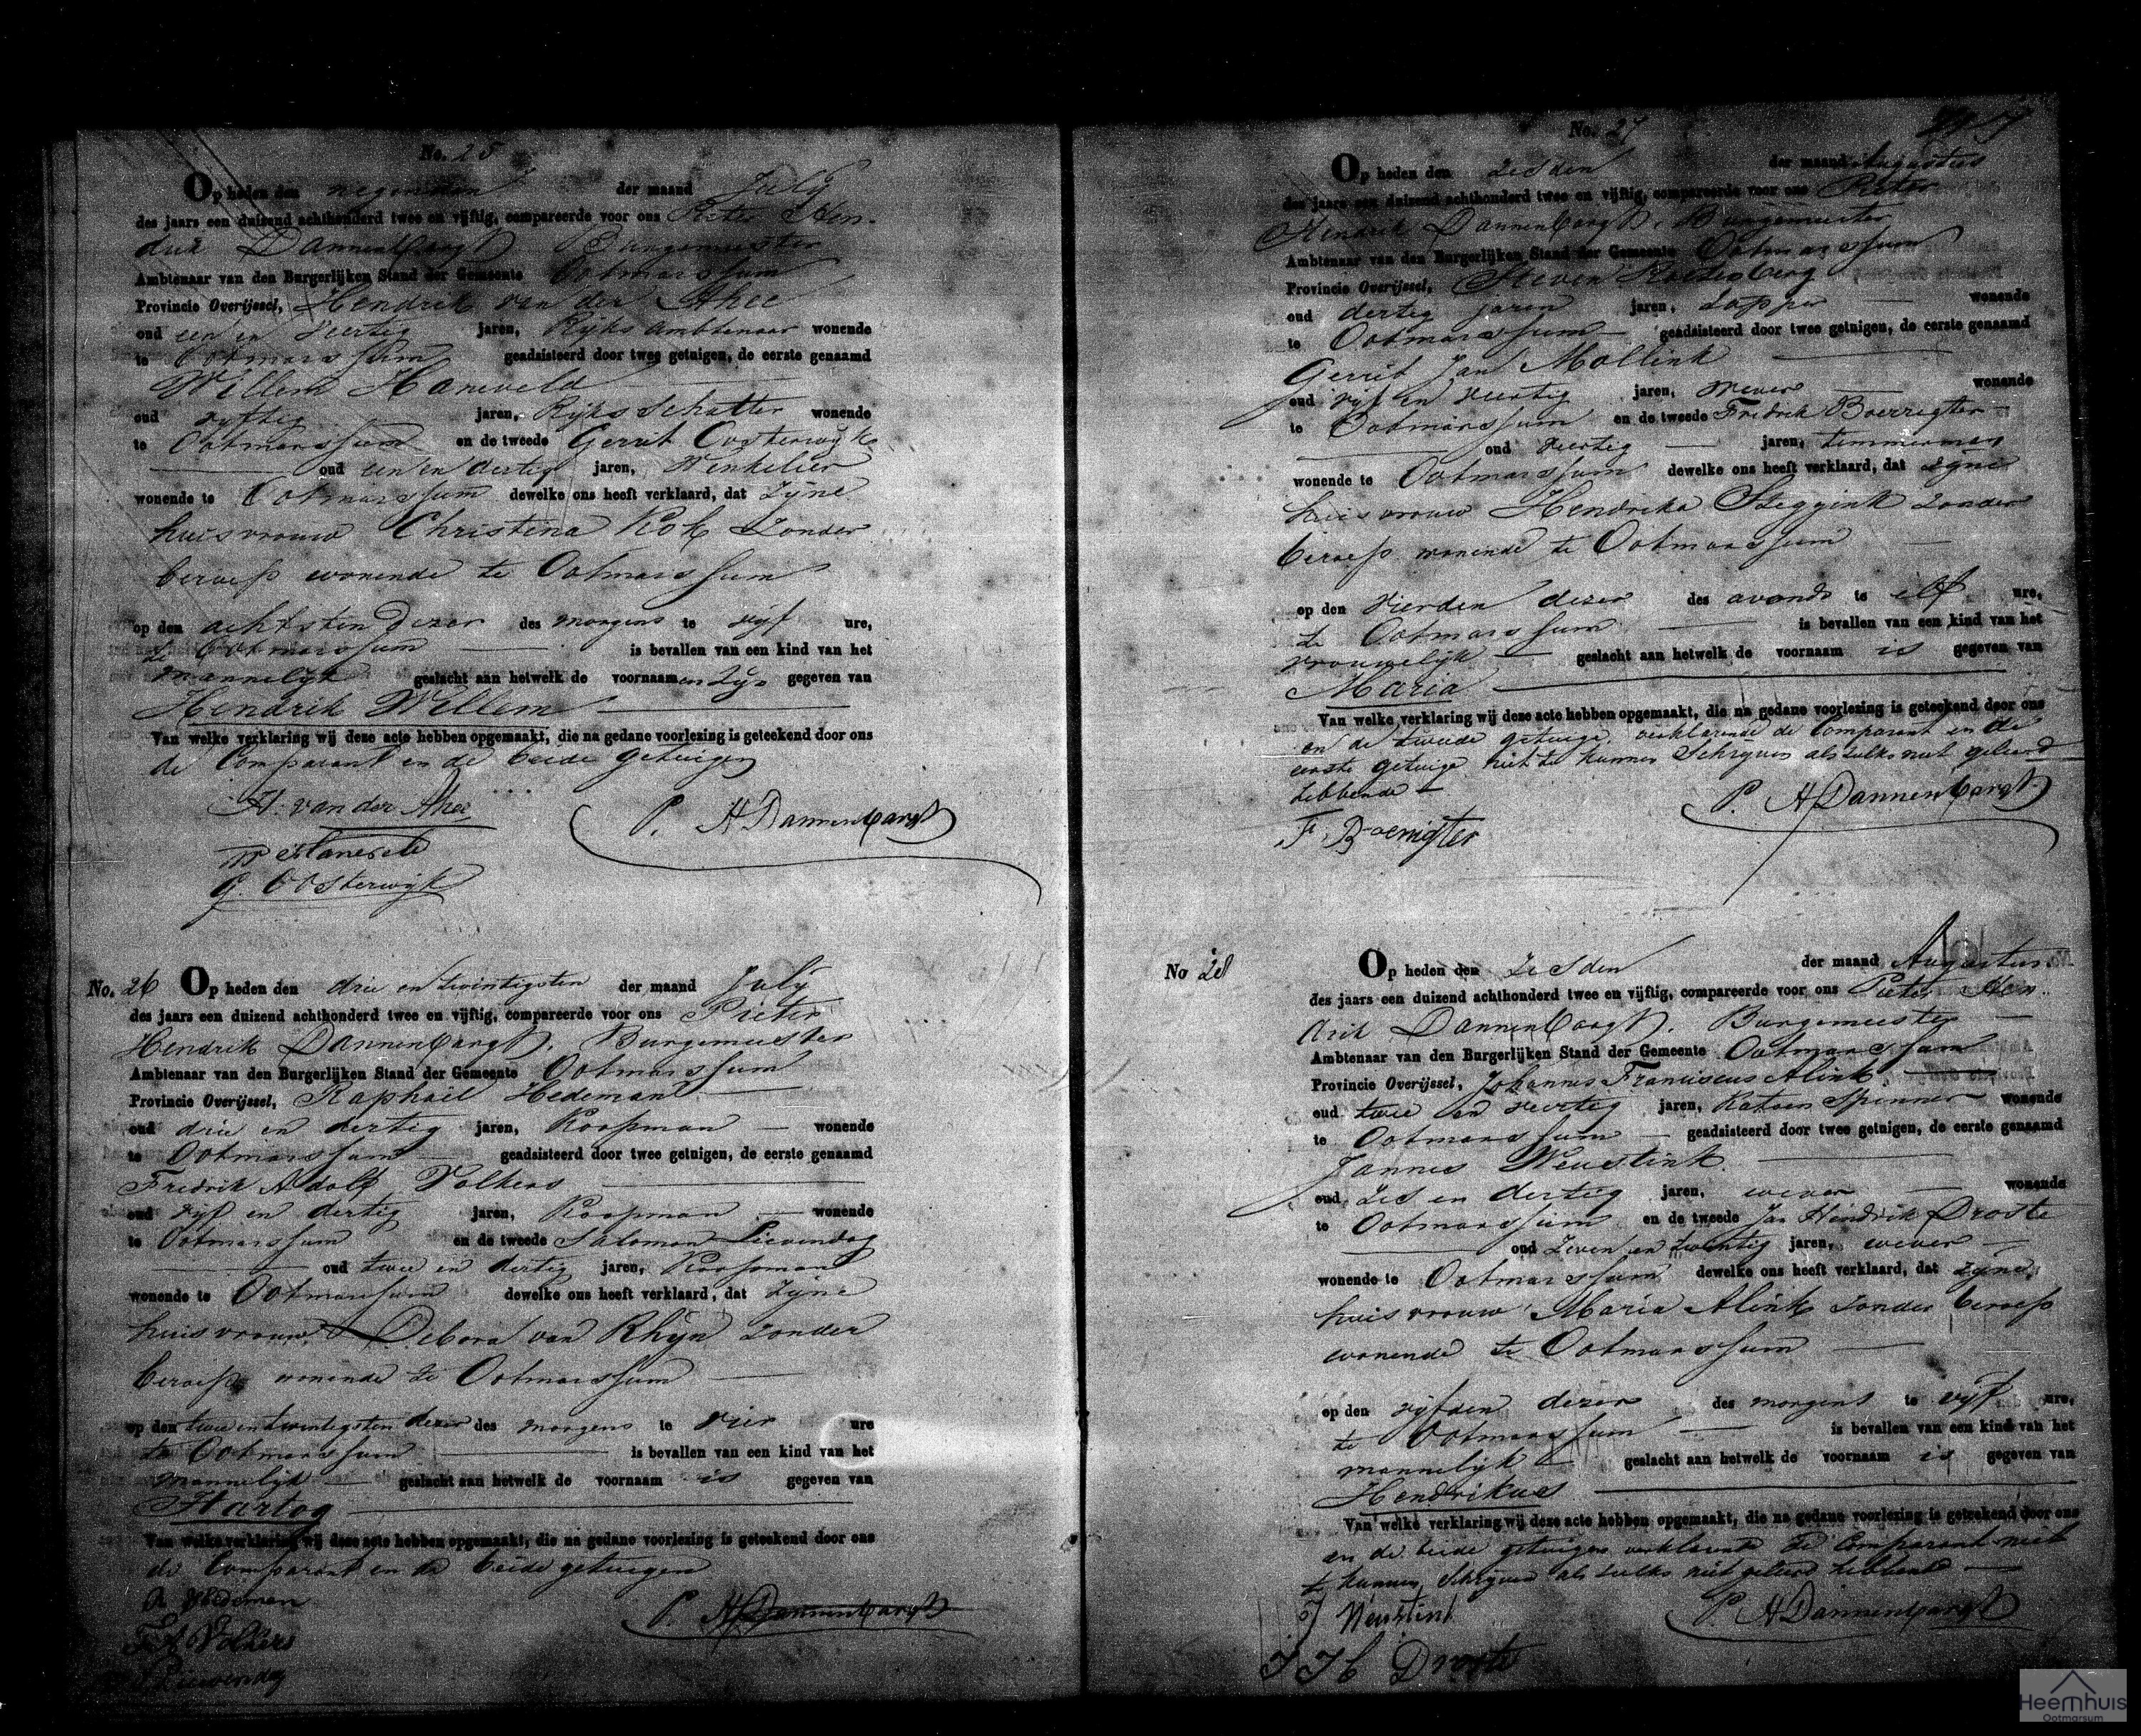 No. 25
Op heden den negenden der maand July
des jaars een duizend achthonderd twee en vijftig, compareerde voor ons Pieter Hen-
drik Dannenbargh. Burgemeester
Ambtenaar van den Burgerlijken Stand der Gemeente Ootmarssum
Provincie Overijssel, Hendrik van der Ahee
oud een en veertig jaren, Rijks ambtenaar wonende
te Ootmarssum geadsisteerd door twee getuigen, de eerste genaamd
Willem Haneveld
oud vyftig jaren, Ryks Schatter wonende
te Ootmarssum en de tweede Gerrit Oosterwyk
oud een en dertig jaren, Winkelier
wonende te Ootmarssum dewelke ons heeft verklaard, dat zyne
huisvrouw Christina Kok zonder
beroep wonende te Ootmarssum
op den achtsten dezer des morgens te vyf ure,
te Ootmarssum is bevallen van een kind van het
mannelyk geslacht aan hetwelk de voornaamen zyn gegeven van
Hendrik Willem
Van welke verklaring wij deze acte hebben opgemaakt, die na gedane voorlezing is geteekend door ons
de Comparant en de beide getuigen
H. van der Ahee
P. H Dannenbargh
W Haneveld
G. Oosterwijk
No. 26 Op heden den drie en twintigsten der maand July
des jaars een duizend achthonderd twee en vijftig, compareerde voor ons Pieter
Hendrik Dannenbargh. Burgemeester
Ambtenaar van den Burgerlijken Stand der Gemeente Ootmarssum
Provincie Overijssel, Raphaël Hedeman
oud drie en dertig jaren, Koopman wonende
te Ootmarssum geadsisteerd door twee getuigen, de eerste genaamd
Fredrik Adolf Volkers
oud vyf en dertig jaren, Koopman wonende
te Ootmarssum en de tweede Salomon Lievendag
oud twee en dertig jaren, Koopman
wonende te Ootmarssum dewelke ons heeft verklaard, dat zyne
huisvrouw Debora van Rhyn zonder
beroep wonende te Ootmarssum
op den twee en twintigsten dezer des morgens te vier ure
te Ootmarssum is bevallen van een kind van het
mannelyk geslacht aan hetwelk de voornaam is gegeven van
Hartog
Van welke verklaring wij deze acte hebben opgemaakt, die na gedane voorlezing is geteekend door ons
de Comparant en de beide getuigen
R Hedeman
P. H Dannenbargh
F A Volkers
Lievendag
No. 27
Op heden den zesden der maand Augustus
des jaars een duizend achthonderd twee en vijftig, compareerde voor ons Pieter
Hendrik Dannenbargh. Burgemeester
Ambtenaar van den Burgerlijken Stand der Gemeente Ootmarssum
Provincie Overijssel, Steven
oud dertig jaren jaren, wonende
te Ootmarssum geadsisteerd door twee getuigen, de eerste genaamd
Gerrit Jan Mollink
oud vyf en veertig jaren, wever wonende
te Ootmarssum en de tweede Fredrik Boerrigter
oud veertig jaren, timmerman
wonende te Ootmarssum dewelke ons heeft verklaard, dat zyne
huisvrouw Hendrika Steggink zonder
beroep wonende te Ootmarssum
op den vierden dezer des avonds te elf ure,
te Ootmarssum is bevallen van een kind van het
vrouwelyk geslacht aan hetwelk de voornaam is gegeven van
Maria
Van welke verklaring wij deze acte hebben opgemaakt, die na gedane voorlezing is geteekend door ons
en de tweede getuige, verklarende de Comparant en de
eerste getuige niet te kunnen Schryven als zulks niet geleerd
hebbende
P. H Dannenbargh
F. Boerrigter
No 28 Op heden den zesden der maand Augustus
des jaars een duizend achthonderd twee en vijftig, compareerde voor ons Pieter Hen-
drik Dannenbargh. Burgemeester
Ambtenaar van den Burgerlijken Stand der Gemeente Ootmarssum
Provincie Overijssel, Johannes Franciscus Alink
oud twee en veertig jaren, Katoen Spinner wonende
te Ootmarssum geadsisteerd door twee getuigen, de eerste genaamd
Jannes Neustink
oud zes en dertig jaren, wever wonende
te Ootmarssum en de tweede Jan Hendrik Droste
oud zeven en twintig jaren, wever
wonende te Ootmarssum dewelke ons heeft verklaard, dat zyne
huisvrouw Maria Alink zonder beroep
wonende te Ootmarssum
op den vyfden dezer des morgens te vyf ure,
te Ootmarssum is bevallen van een kind van het
mannelyk geslacht aan hetwelk de voornaam is gegeven van
Hendrikus
Van welke verklaring wij deze acte hebben opgemaakt, die na gedane voorlezing is geteekend door ons
en de beide getuigen verklarende de Comparant niet
te kunnen Schryven als zulks niet geleerd hebbende
J Neustink
P. H Dannenbargh
J H Droste
Heemhuis
Ootmarsum